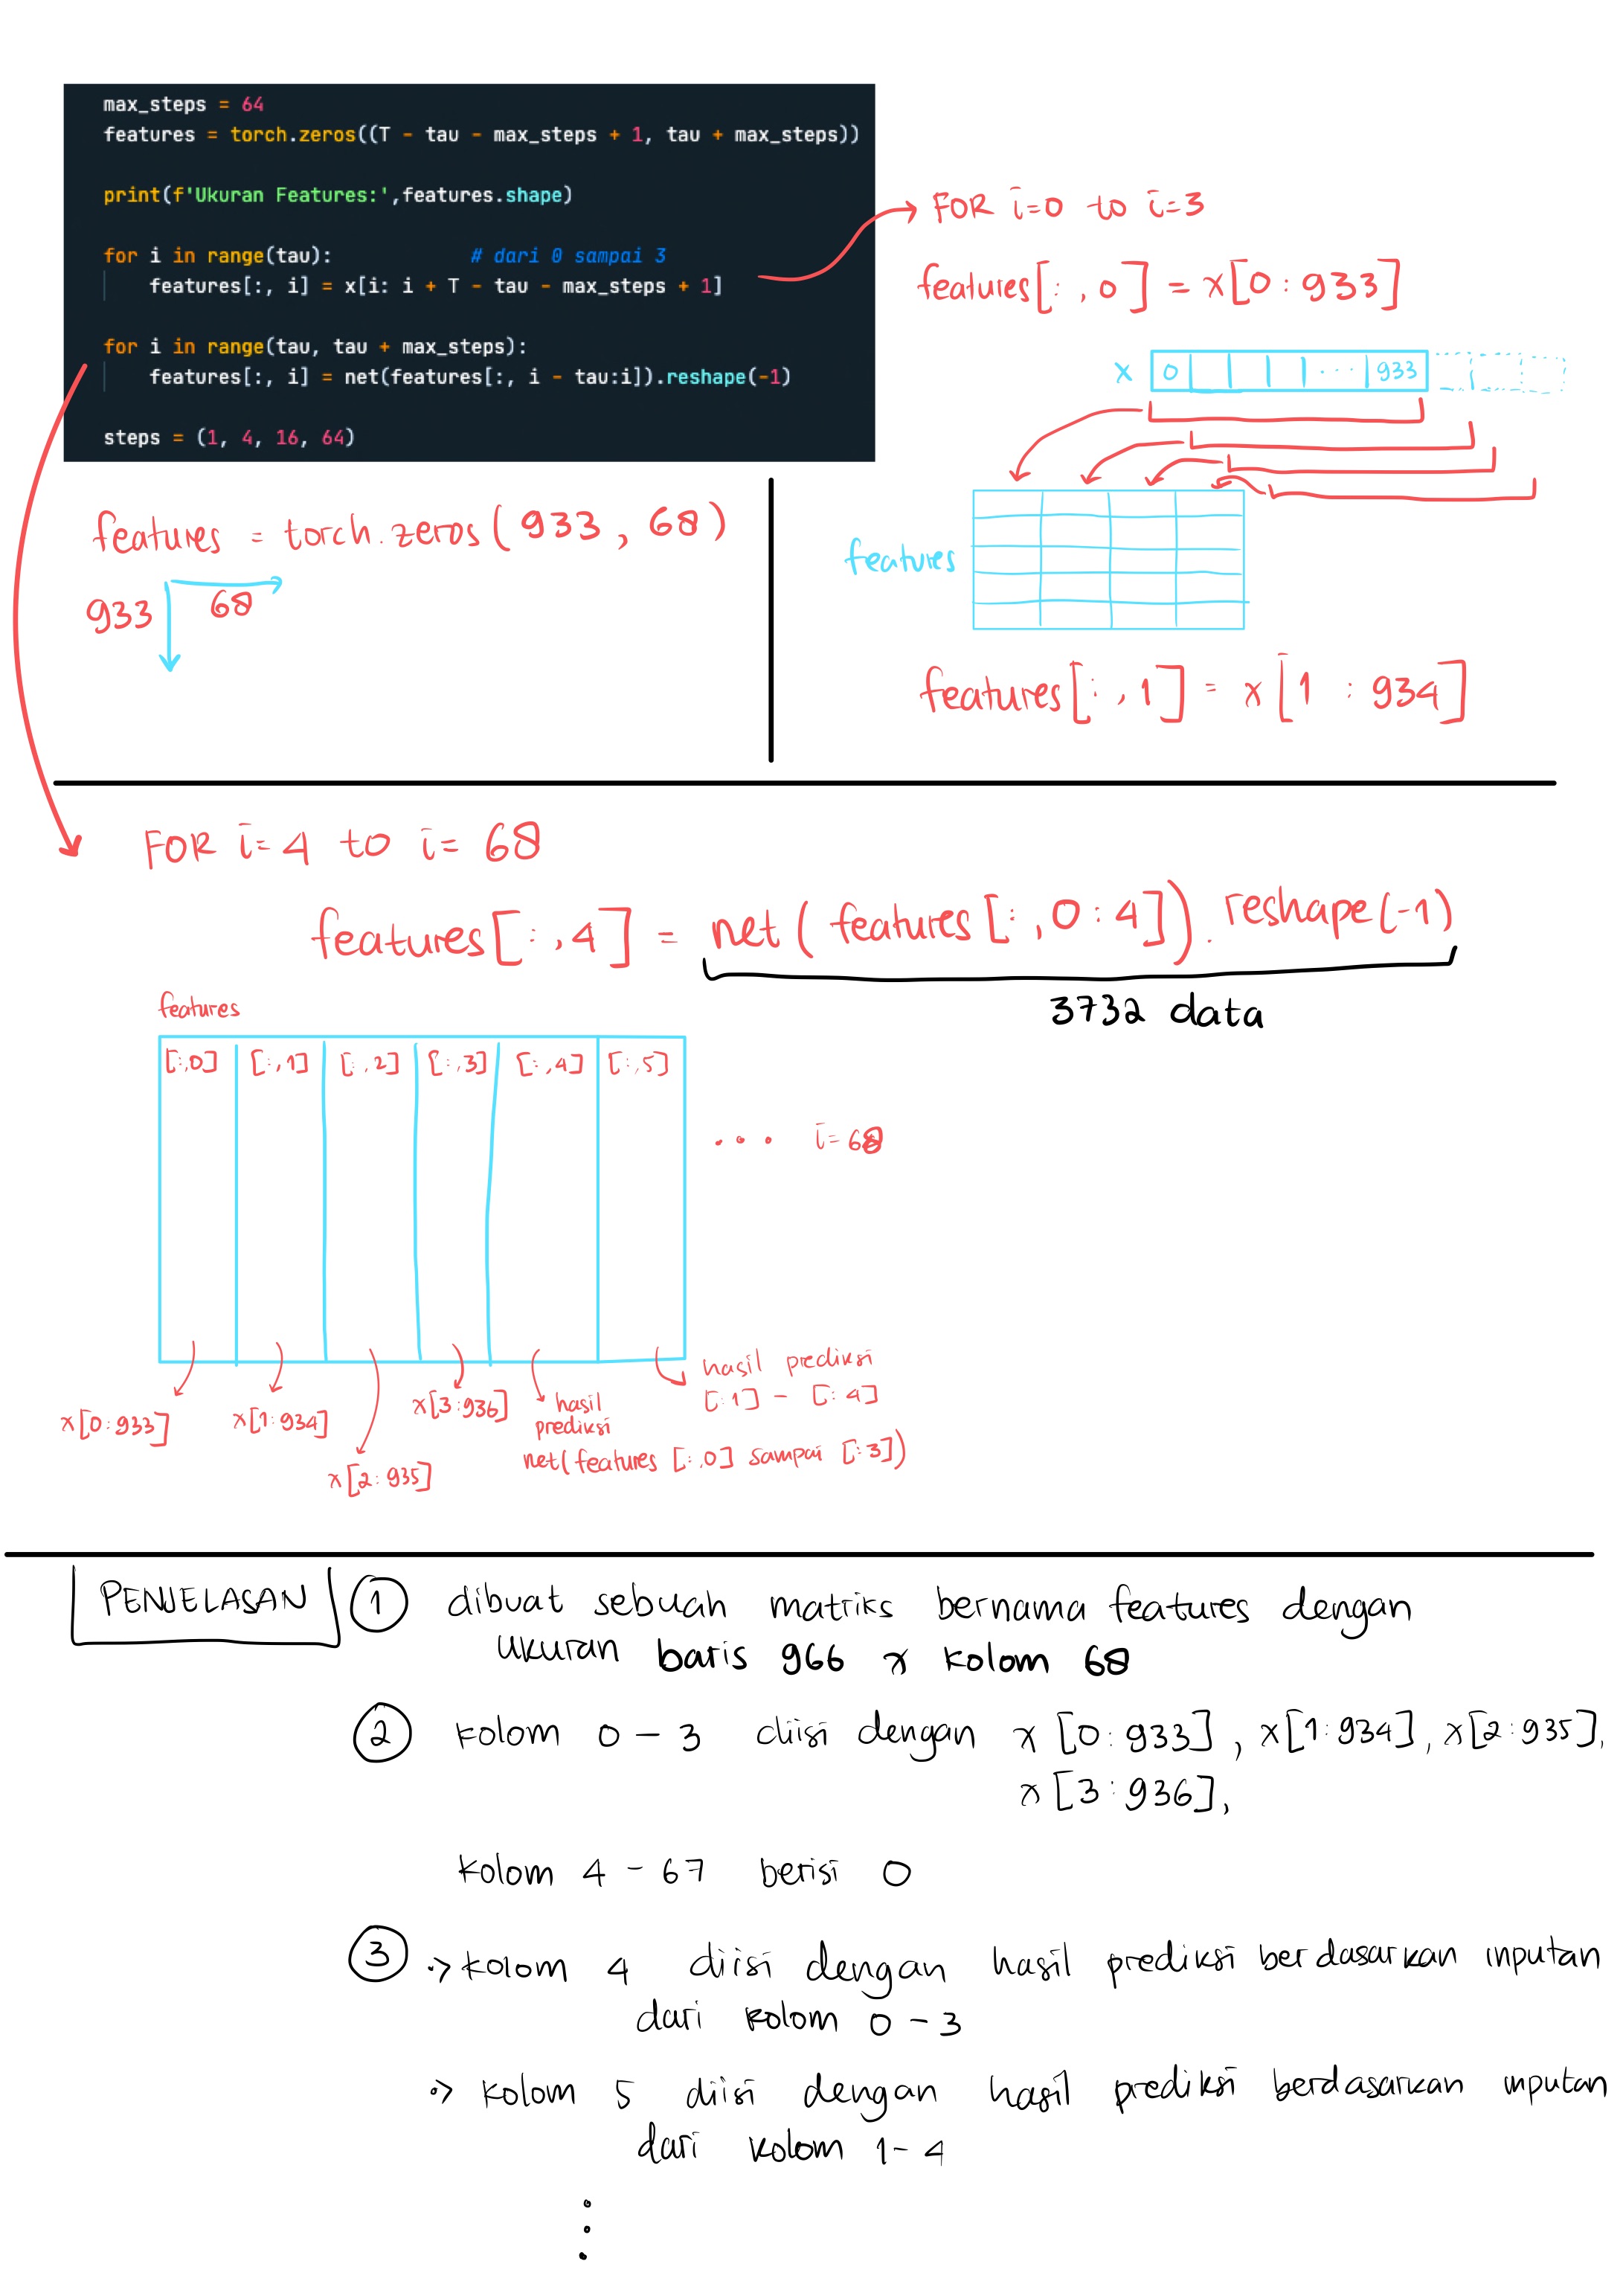 max_steps = 64
features = torch.zeros((T - tau - max_steps + 1, tau + max_steps))
print(f'Ukuran Features:',features.shape)
for i in range(tau): # dari 0 sampai 3
features[:, i] = x[i: i + T - tau - max_steps + 1]
for i in range(tau, tau + max_steps):
features[:, i] = net(features[:, i - tau:i]).reshape(-1)
steps = (1, 4, 16, 64)
FOR i=0 to i=3
features[:,0] = x[0:933]
x 0 ... 933
features
features[:,1] = x[1:934]
features = torch.zeros(933, 68)
933 68
FOR i=4 to i=68
features[:,4] = net(features[:,0:4]).reshape(-1)
3732 data
features
[:,0] [:,1] [:,2] [:,3] [:,4] [:,5]
... i=68
x[0:933]
x[1:934]
x[2:935]
x[3:936]
hasil
prediksi
net(features [:,0] sampai [:3])
hasil prediksi
[:1] - [:4]
PENJELASAN
1 dibuat sebuah matriks bernama features dengan
ukuran baris 966 x kolom 68
2 kolom 0 - 3 diisi dengan x[0:933], x[1:934], x[2:935],
x[3:936],
kolom 4 - 67 berisi 0
3 -> kolom 4 diisi dengan hasil prediksi berdasarkan inputan
dari kolom 0 - 3
-> kolom 5 diisi dengan hasil prediksi berdasarkan inputan
dari kolom 1 - 4